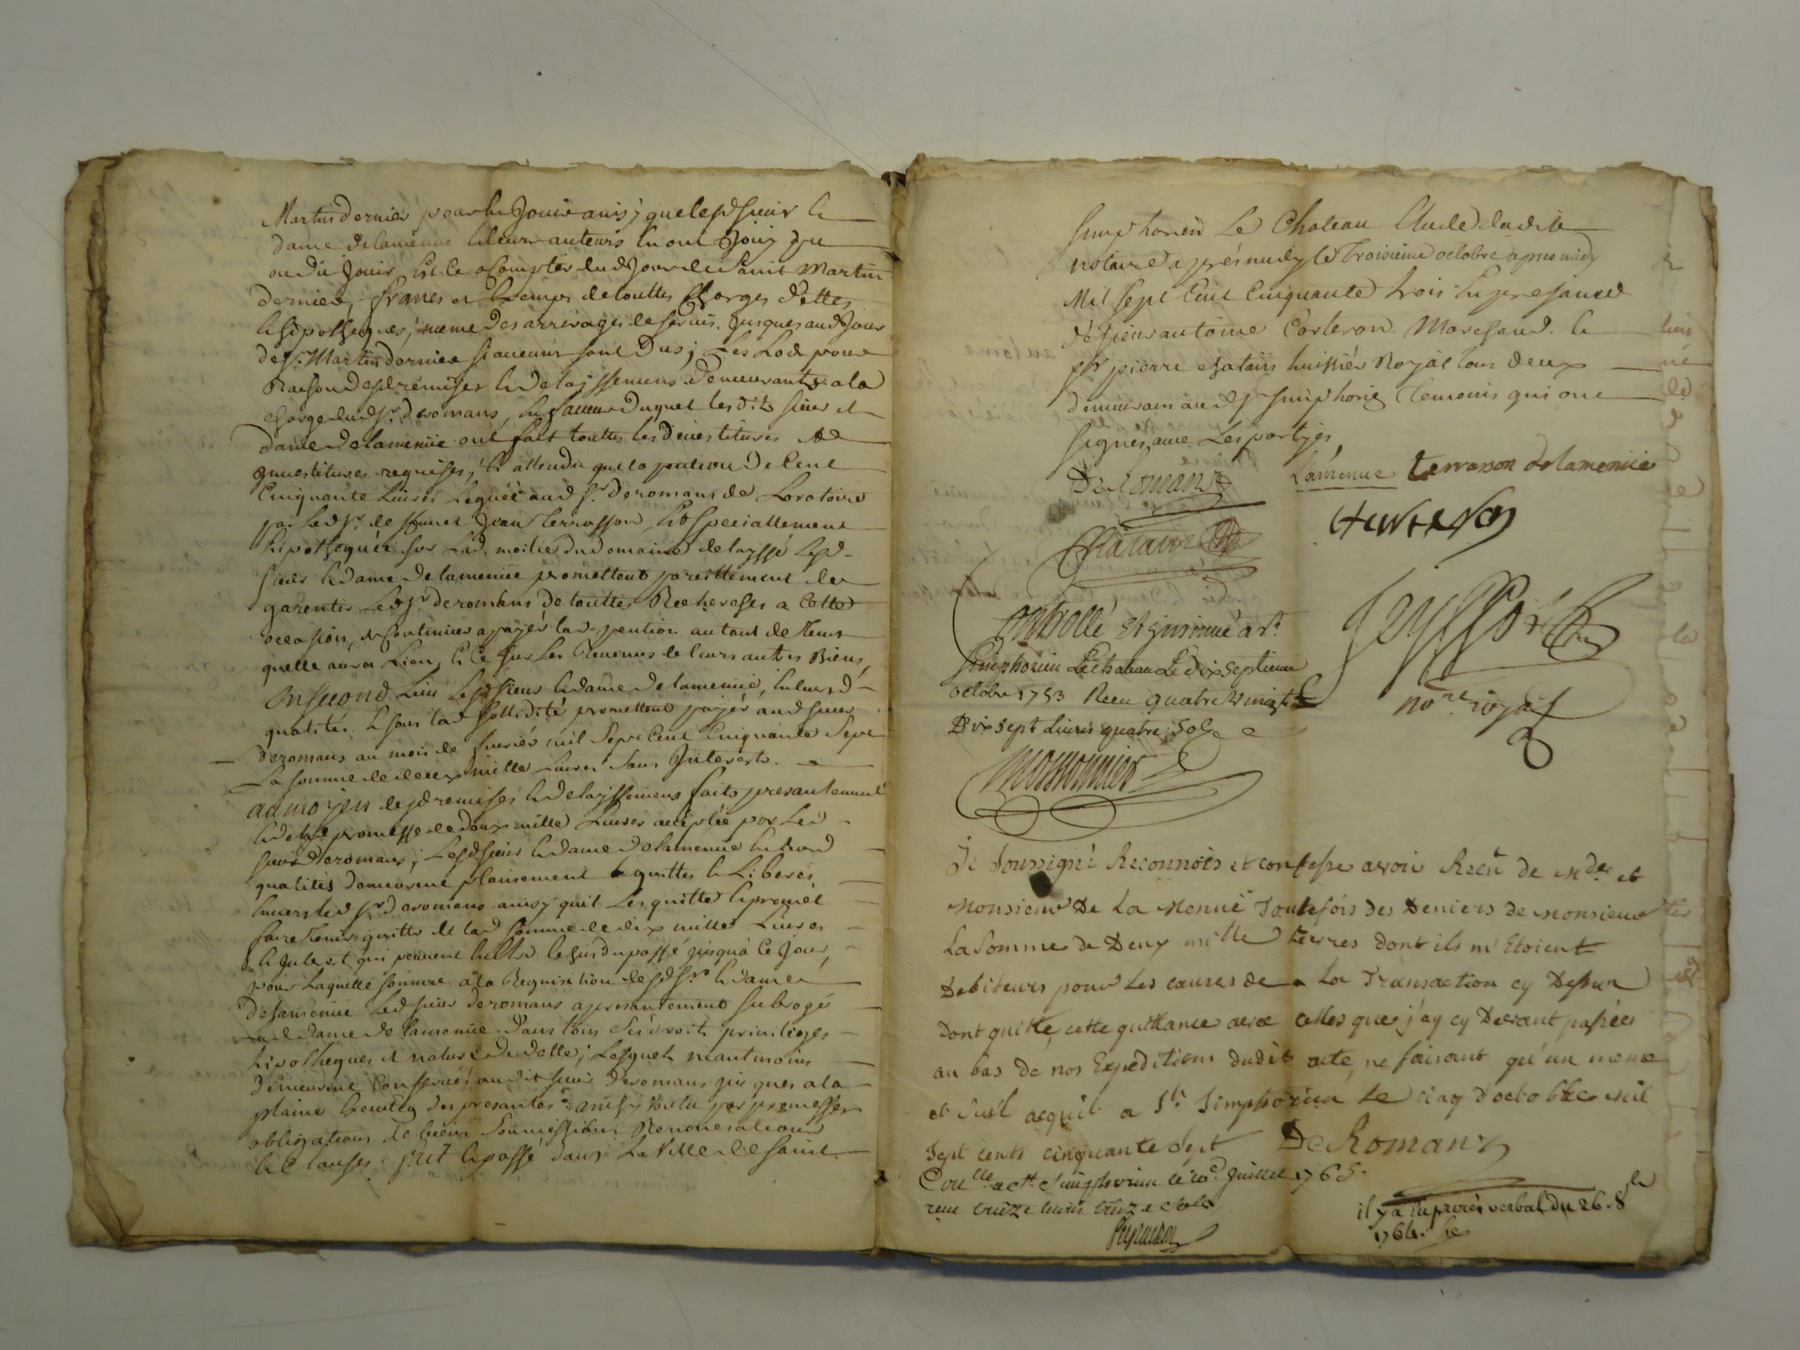 Martin dernier pour les Jouir ainsi que lesd Sieur &
dame de lamenüe & leurs auteurs en ont Jouy du
ou dû Jouir, Et le a Compter dud Jour de Saint Martin
dernier, francs et Exemps de touttes Charges dettes
& hipotheques, même des arrerages de servis Jusques aud Jour
de St. Martin dernier si aucuns sont Dus; Les Lods pour
Raison desd remises & delaissemens demeurants a la
charge dud Sr. deromans, En faveur duquel les dits sieur et
dame de lamenüe ont fait touttes les devestitures &
Investitures requises, & attendu que la pention de Cent
Cinquante Livres Leguée aud Sr. deromans de Loratoire
par Led Sr. deffunct Jean terrasson Est Speciallement
hipothequée sur Lad. moitié du domaine delayssé Lesd.
sieur & dame de lamenüe promettent pareillement de
garentir Led Sr deromans de touttes Recherches a Cette
occasion, & Continuer a payér lad pention autant de tems
quelle aura Lieu, & Ce sur Les Revenus de leurs autres Biens,
En second Lieu Lesd Sieur & dame de lamenüe, En leursd
qualités & sous lad sollidité promettent payér aud sieur
deromans au mois de fevriér mil Sept Cent Cinquante Sept
La somme de deux mille Livres Sans Interests.
au moyen desd remises & delayssemens faits presantement
& de la promesse de deux mille Livres aceptée par Led
sieur deromans; Lesd Sieur & dame de lamenüe En leursd
qualités demeurent plainement quittes & Liberés
Envers led Sr. deromans ainsy quil Les quitte & promet
faire tenir quitte de lad somme de dix mille Livres
& Interest qui peuvent Estre Echus du passé jusqua Ce Jour,
pour Laquelle somme a la Requisition desd Sr. & dame
de lamenüe Led sieur deromans a presantement subrogé
lad dame de lamenüe dans tous ses droits privileges
hipotheques et nature de dette; Lesquels neantmoins
demeurent Conservés au dit sieur deromans jusques a la
plaine Execution des presantes ainsy voulu par promesses
obligations de biens soumissions Renonciations
& Clauses. fait & passé dans La Ville de Saint
Simphorien Le Chateau Etude dudit
notaire apres midy le Troisieme octobre apres midy
Mil Sept Cent Cinquante trois En presance
de sieur antoine Corteron Marchand &
Sr pierre chatain huissiér Royal tous deux
demeurans aud St simphorien temoins qui ont
signés avec Les partyes
DeRomans Lamenue terrasson de lamenüe
Chatain
Controllé et Insinué a St.
Simphorien Le chateau Le dix septieme
octobre 1753 Receu quatre vingt
Dix sept Livres quatre sols
nore royal
Je Soussigné Reconnois et confesse avoir Recu de Mde et
Monsieur De La Menüe Toutefois des Deniers de Monsieur
La Somme de Deux mille Livres dont ils m'Etoient
Debiteurs pour Les causes de La Transaction cy Dessus
Dont quitte, cette quittance avec celles que j'ay cy Devant passées
au bas de nos Expeditions dudit acte, ne faisant qu'un meme
et seul acquit a St. Simphorien Le cinq d'octobre mil
Sept cents cinquante sept DeRomans
Conlle a St Simphorien le 10e Juillet 1765.
recu treize livres treize sols
il y a Un procès verbal du 26. 8bre
1764.